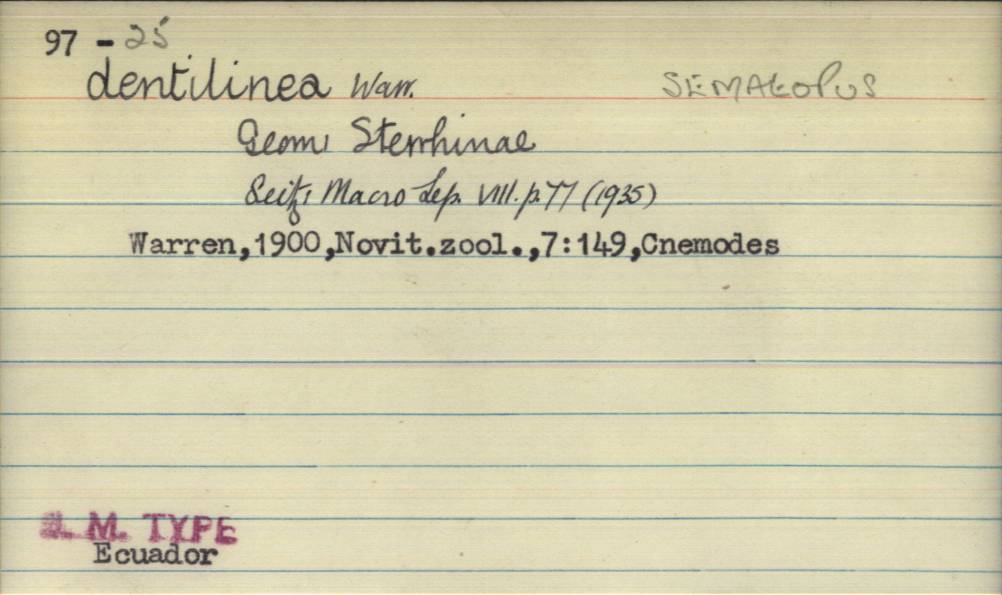 97 - 25
dentilinea Warr. SEMAEOPUS
Geom, Sterrhinae
Seitz, Macro Lep. VIII. p. 77 (1935)
Warren,1900,Novit.zool.,7:149,Cnemodes
M. TYPE
Ecuador